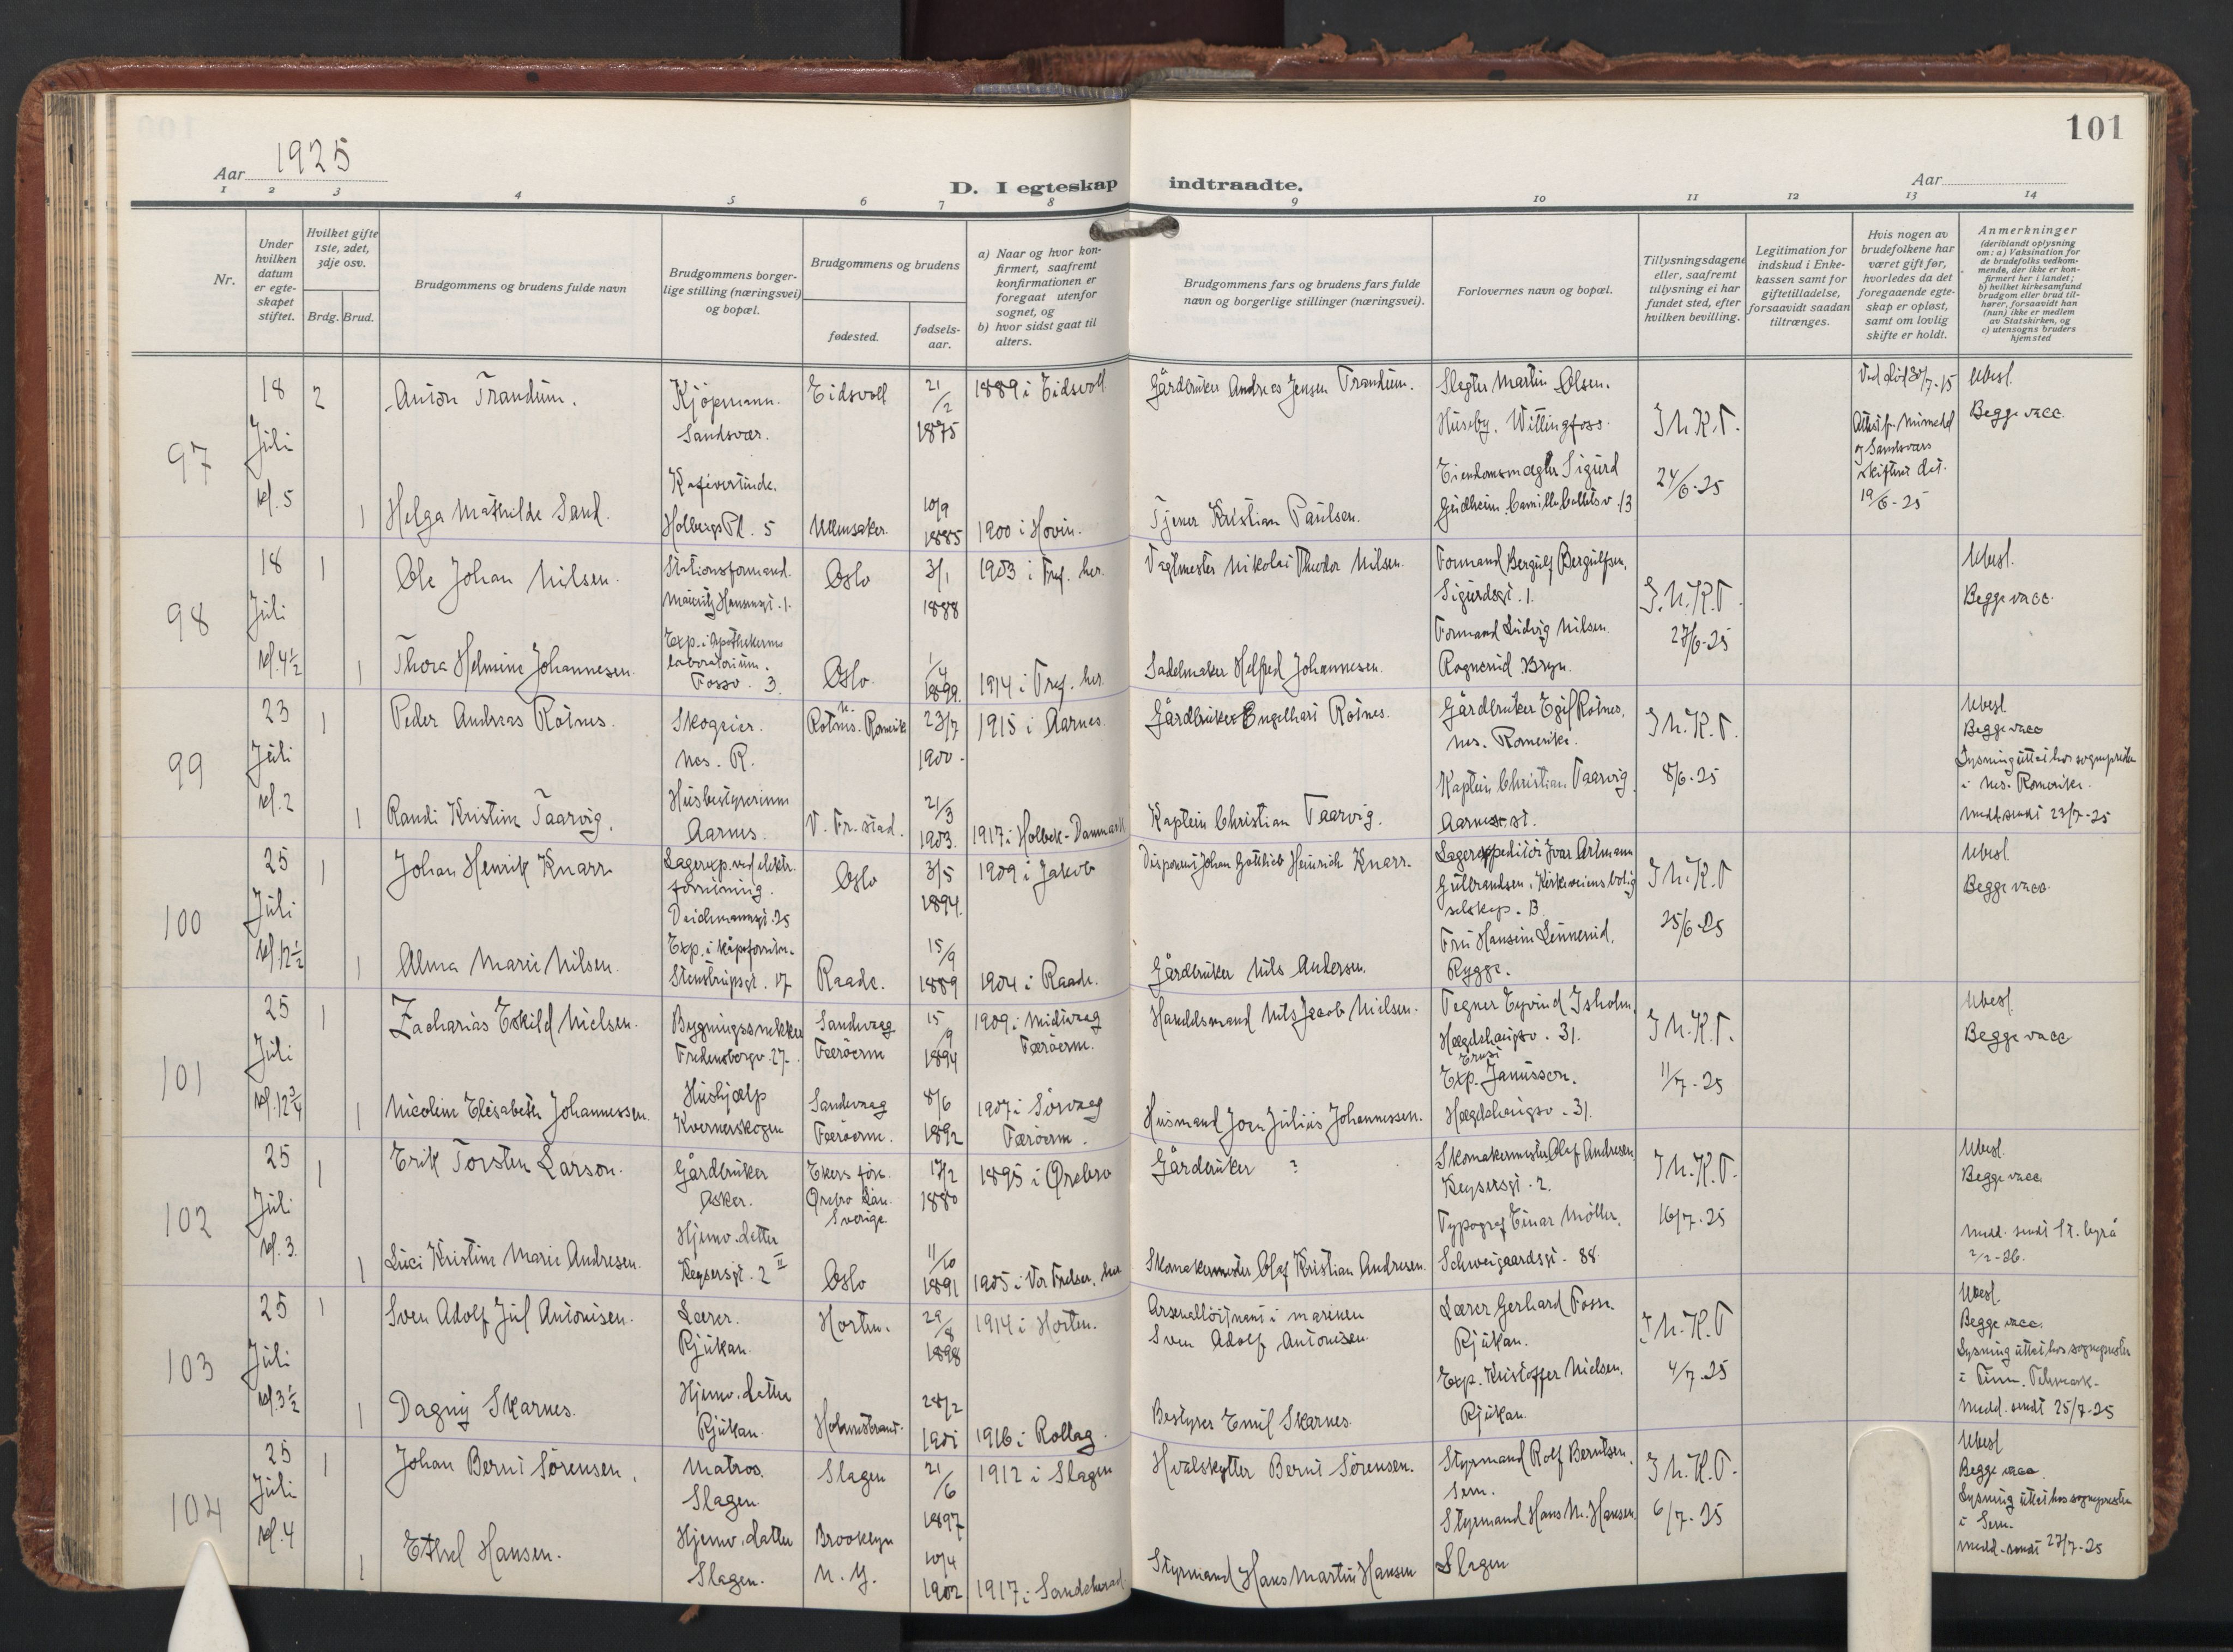 101
Aar 1925
D. I egteskap indtraadte.
Aar
1 2 3 4 5 6 7 8 9 10 11 12 13 14
Nr.
Under hvilken datum er egteskapet stiftet.
Hvilket gifte 1ste, 2det, 3dje osv.
Brdg. Brud.
Brudgommens og brudens fulde navn
Brudgommens borgerlige stilling (næringsvei) og bopæl.
Brudgommens og brudens
fødested.
fødselsaar.
a) Naar og hvor konfirmert, saafremt konfirmationen er foregaat utenfor sognet, og
b) hvor sidst gaat til alters.
Brudgommens fars og brudens fars fulde navn og borgerlige stillinger (næringsvei).
Forlovernes navn og bopæl.
Tillysningsdagene eller, saafremt tillysning ei har fundet sted, efter hvilken bevilling.
Legitimation for indskud i Enkekassen samt for giftetilladelse, forsaavidt saadan tiltrænges.
Hvis nogen av brudefolkene har været gift før, hvorledes da det foregaaende egteskap er opløst, samt om lovlig skifte er holdt.
Anmerkninger
(deriblandt oplysning om: a) Vaksination for de brudefolks vedkommende, der ikke er konfirmert her i landet; b) hvilket kirkesamfund brudgom eller brud tilhører, forsaavidt han (hun) ikke er medlem av Statskirken, og c) utensogns bruders hjemsted
97
18 Juli kl. 5
2 Anton Trandum. Kjøpmann. Sandsvær. Eidsvoll 21/2 1875 1889 i Eidsvoll
Gårdbruker Andreas Jensen Trandum.
Slagter Martin Olsen.
Huseby. Wittingfoss.
J.N.K.T.
24/6-25
Ved død 30/7-15
19/6-25
Ubesl.
Begge vacc.
1 Helga Mathilde Sand. Kafévertinde. Holbergs Pl. 5 Ullensaker. 10/9 1885 1900 i Hovin.
Tjener Kristian Paulsen.
Eiendomsmægler Sigurd
Gudheim. Camilla Colletsv. 13
98
18 Juli kl. 4½
1 Ole Johan Nilsen. Stationsformand. Oslo 3/1 1888 1903 i Tref. her.
Nikolai Theodor Nilsen.
Formand Bergulf Bergulfsen.
Sigurdsgt. 1.
J.N.K.T.
27/6-25
Ubesl.
Begge vacc.
1 Thora Helmine Johannesen. Exp. i Apothekernes laboratorium. Fossv. 3. Oslo. 1/4 1899. 1914 i Tref. her.
Sadelmaker Helfred Johannesen.
Formand Ludvig Nilsen.
Rognerud. Bryn.
99
23 Juli kl. 2
1 Peder Andreas Rotnes. Skogeier. Nes. R. Rotnes. n. Romerik 23/7 1900. 1915 i Aarnes.
Gårdbruker Engelhart Rotnes.
Gårdbruker Egil Rotnes.
Nes. Romerike.
J.N.K.T.
8/6-25
Ubesl.
Begge vacc
Lysning uttat hos sogneprsten
i Nes. Romerike.
Medd. sendt 23/7-25
1 Randi Kristine Taarvig. Husbestyrerinne Aarnes. V. Fr.stad. 21/3 1903. 1917 i Holbek-Danmark
Kaptein Christian Taarvig.
Kaptein Christian Taarvig.
Aarnes st.
100
25 Juli kl. 12½
1 Johan Henrik Knarr Lagerexp. ved elektr. forretning. Deichmannsgt. 25 Oslo 3/5 1894. 1909 i Jakob
Disponent Johan Gottlieb Heinrich Knarr.
Lagerexpeditør Ivar Artmann
Gulbrandsen, Kirkeveiens bolig
selskap. B.
J.N.K.T
25/6-25
Ubesl.
Begge vacc.
1 Alma Marie Nilsen. Exp. i kåpeforretn. Stenstrupsgt. 17 Raade. 15/9 1889 1904 i Raade.
Gårdbruker Nils Andersen.
Fru Hansine Lunnerud.
Rygge.
101
25 Juli kl. 12¾
1 Zacharias Eskild Nielsen. Bygningssnekker Fredensborgv. 27. Sandvaag Færöerne 15/9 1894 1909 i Midvaag Færöerne.
Handelsmand Nils Jacob Nielsen.
Tegner Eyvind Isholm.
Hægdehaugsv. 31.
J.N.K.T.
11/7-25
Ubesl.
Begge vacc
1 Nicoline Elisabeth Johannessen. Hushjælp Kvernerskogen Sandevaag Færöerne. 8/6 1892 1907 i Sörvaag Færöerne.
Husmand Joen Julius Johannessen.
Exp. Ernst Janusson.
Hægdehaugsv. 31.
102
25 Juli kl. 3.
1 Erik Torsten Larson. Gårdbruker Asker. Ekers förs. Ørebro Län. Sverige. 17/2 1880 1895 i Ørebro
Gårdbruker ?
Skomakermester Olaf Andresen.
Keysersgt. 2.
J.N.K.T.
16/7-25
Ubesl.
Begge vacc
Medd. sendt St. byrå
2/2-26.
1 Luci Kristine Marie Andresen. Hjemv. datter Keysersgt. 2 II Oslo 11/10 1891 1905 i Vor Frelser, her
Skomakermester Olaf Kristian Andresen.
Typograf Einar Möller.
Schweigaardsgt. 88.
103
25 Juli kl. 3½
1 Sven Adolf Juel Antonisen. Lærer. Rjukan. Horten. 29/8 1898 1914 i Horten.
Arsenalløitnant i marinen
Sven Adolf Antonisen.
Lærer Gerhard Fosse
Rjukan.
J.N.K.T
4/7-25
Ubesl.
Begge vacc.
Lysning uttat hos sogneprsten
i Tinn. Telemark.
Medd. sendt 25/7-25
1 Dagny Skarnes. Hjemv. datter Rjukan. Holmestrand. 28/2 1901 1916 i Rollag.
Bestyrer Emil Skarnes.
Exp. Kristoffer Nielsen.
Rjukan.
104
25 Juli kl. 4
1 Johan Bernt Sörensen. Matros. Slagen. Slagen 21/6 1897 1912 i Slagen
Hvalskytter Bernt Sörensen.
Styrmand Rolf Berntsen.
Sem.
J.N.K.T.
6/7-25
Ubesl
Begge vacc.
Lysning uttat hos sogneprsten
i Sem.
Medd. sendt 27/7-25
1 Ethel Hansen. Hjemv. datter Slagen. Brooklyn N.Y. 10/4 1902 1917 i Sandeherad
Styrmand Hans Martin Hansen
Styrmand Hans M. Hansen.
Slagen